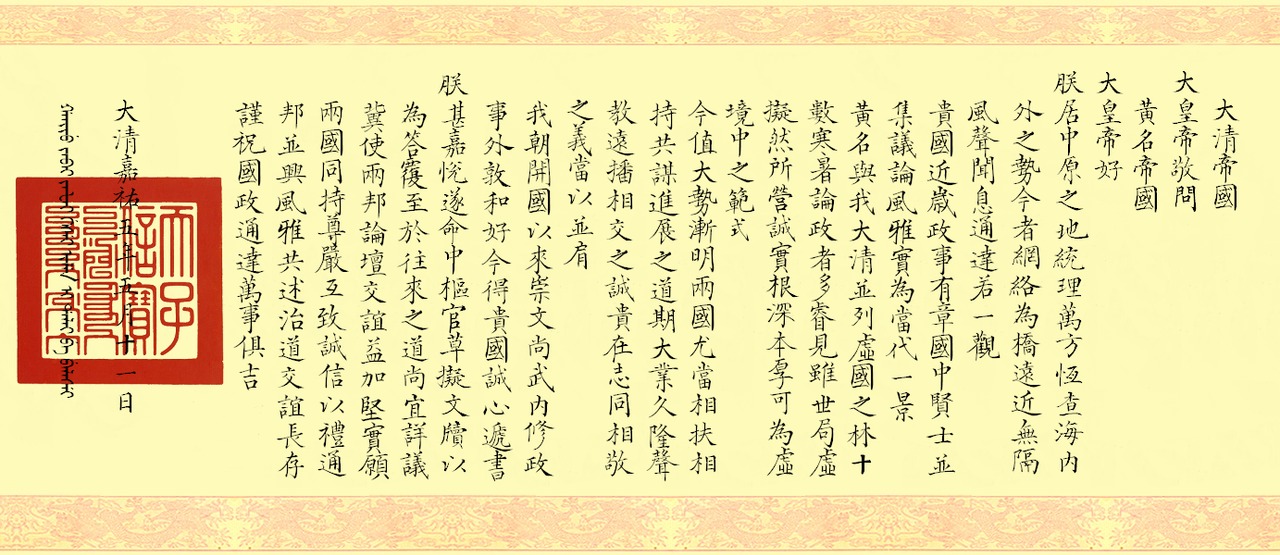 大清帝國
大皇帝敬問
黃名帝國
大皇帝好
朕居中原之地統理萬方恆查海內
外之勢今者網絡為橋遠近無隔
風聲聞息通達若一觀
貴國近歲政事有章國中賢士並
集議論風雅實為當代一景
黃名與我大清並列虛國之林十
數寒暑論政者多睿見雖世局虛
擬然所營誠實根深本厚可為虛
境中之範式
今值大勢漸明兩國尤當相扶相
持共謀進展之道期大業久隆聲
教遠播相交之誠貴在志同相敬
之義當以並肩
我朝開國以來崇文尚武內修政
事外敦和好今得貴國誠心遞書
朕甚嘉悅遂命中樞官草擬文牘以
為答覆至於往來之道尚宜詳議
冀使兩邦論壇交誼益加堅實願
兩國同持尊嚴互致誠信以禮通
邦並興風雅共述治道交誼長存
謹祝國政通達萬事俱吉
大清嘉祐五年五月十一日